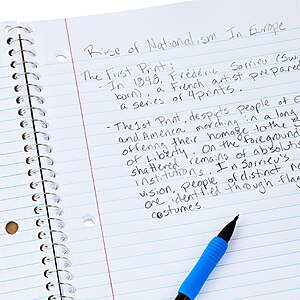 Rise of Nationalism In Europe
The First Print:
In 1848, Frédéric Sorrieu (Swi
born), a French artist prepared
a series of 4 prints.
- The 1st Print, despicts people of E
and America marching in a long
offering their homage to the
of Liberty. On the foreground
shattered remains of absolutis
institutions. In Sorrieu's
vision, people of distinct N
are identified through flag
costumes.